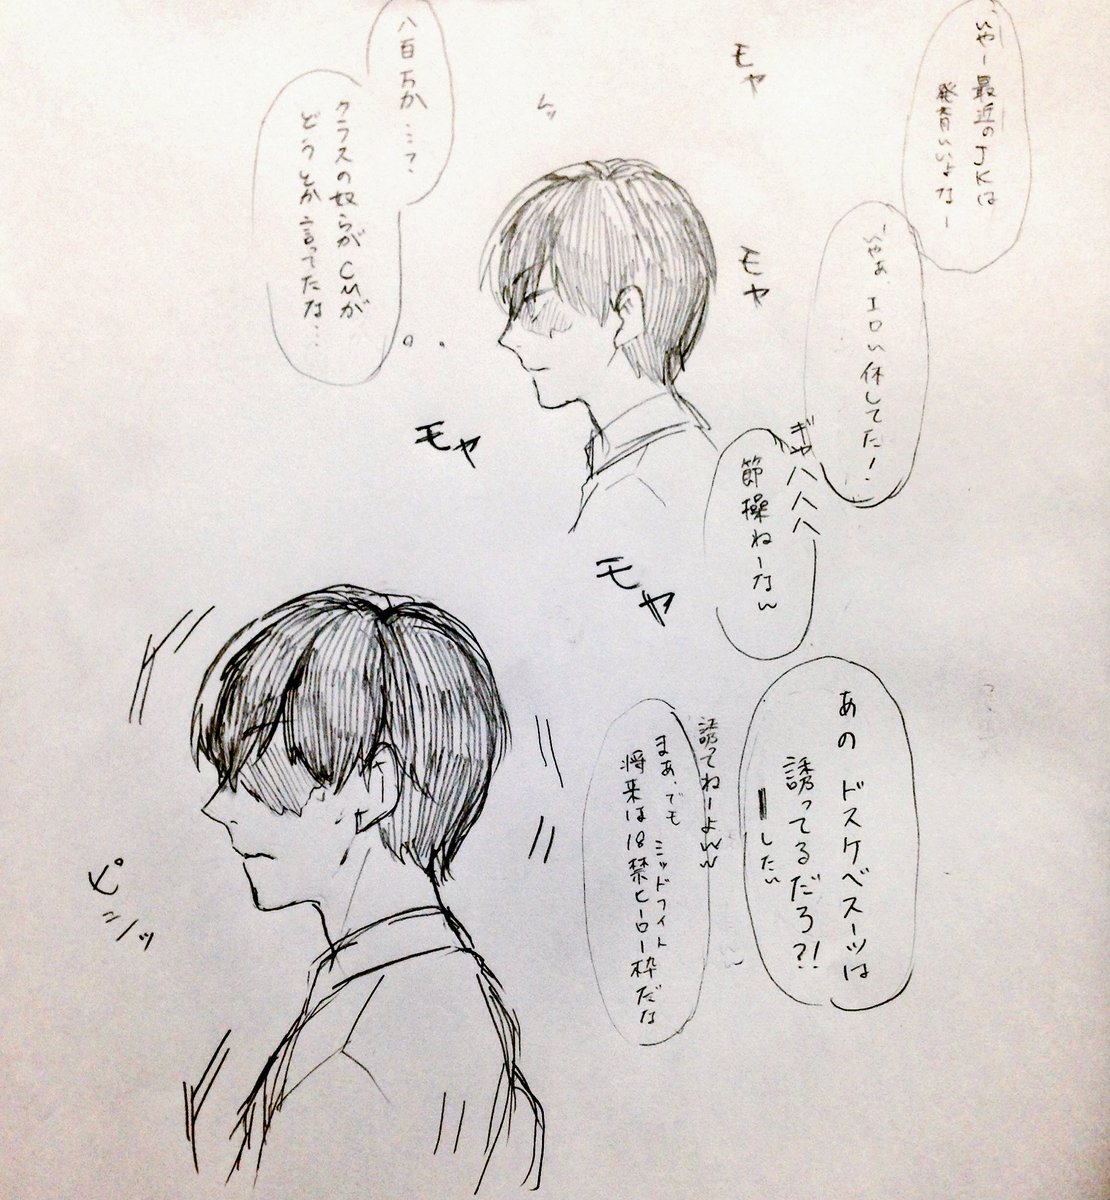 いやー最近のJKは
発育いいよなー
いやぁ、エロい体してた!
ギャハハハ
節操ねーなw
モヤ
モヤ
モヤ
モヤ
八百万か…?
クラスの奴らがCMが
どうとか言ってたな…
あのドスケベスーツは
誘ってるだろ?!
したい
誘てねーよww
まあ、でもミッドナイト
将来は18禁ヒーロー枠だな
ピ